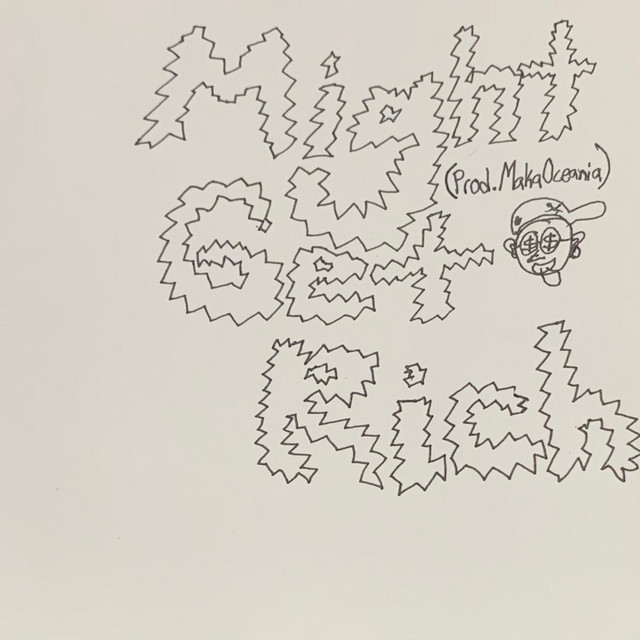 Might
(Prod. MakaOceania)
Get
Rich